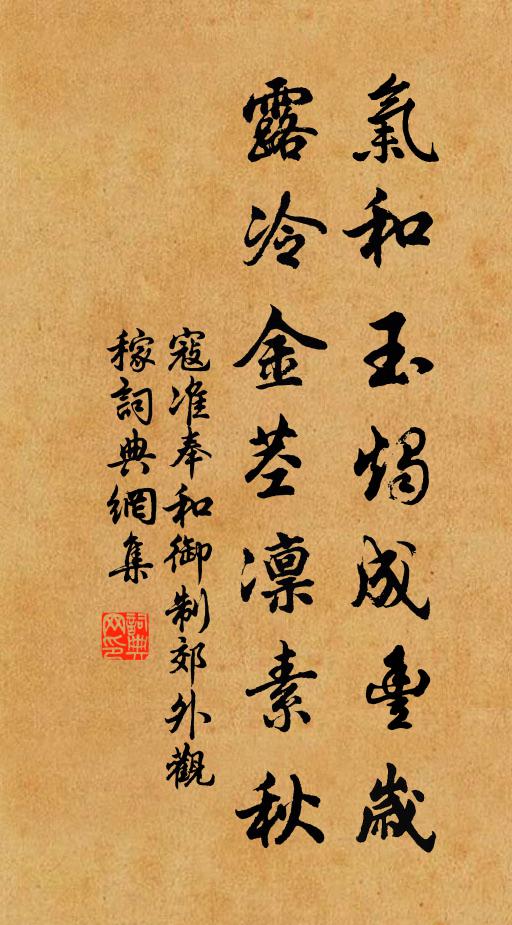 氣和玉燭成豊歲
露冷金莖凛素秋
寇准奉和御制郊外觀
稼詞典網集
詞典網印